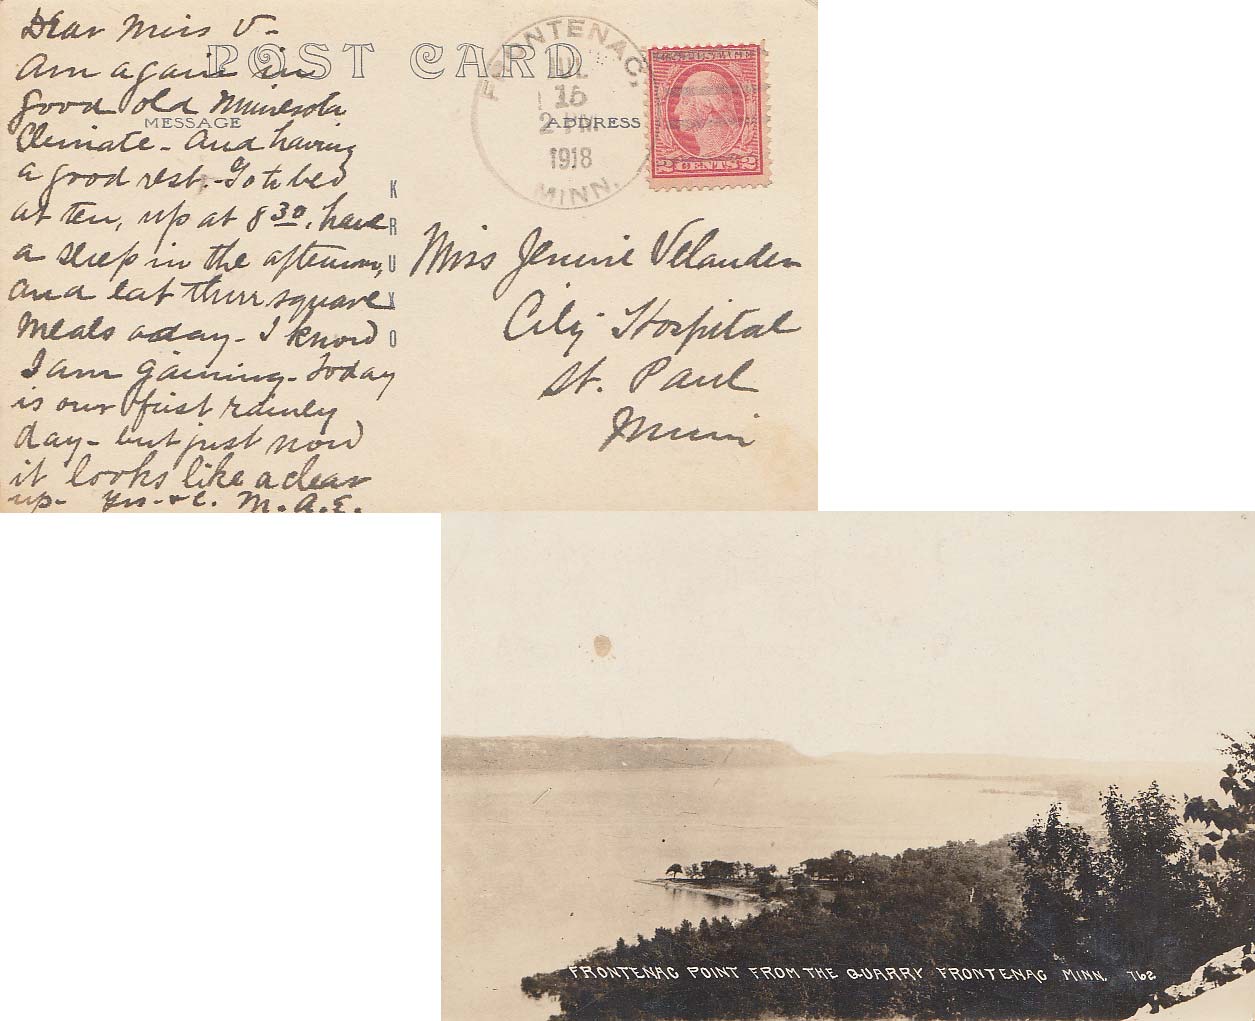 Dear Miss V-
POST CARD
Am again in
good old Minnesota
MESSAGE
Climate - And having
a good rest. Go to bed
at ten, up at 8 30, have
a sleep in the afternoon,
and eat three square
meals a day - I know
I am gaining - Today
is our first rainey
day - but just now
it looks like a clear
up - Yrs - &c. M. A. E.
KRUXO
FRONTENAC,
JUL
15
2 PM
1918
MINN.
ADDRESS
U.S. POSTAGE
2 CENTS 2
Miss Jennie Velander
City Hospital
St. Paul
Minn
FRONTENAC POINT FROM THE QUARRY FRONTENAC MINN. 762